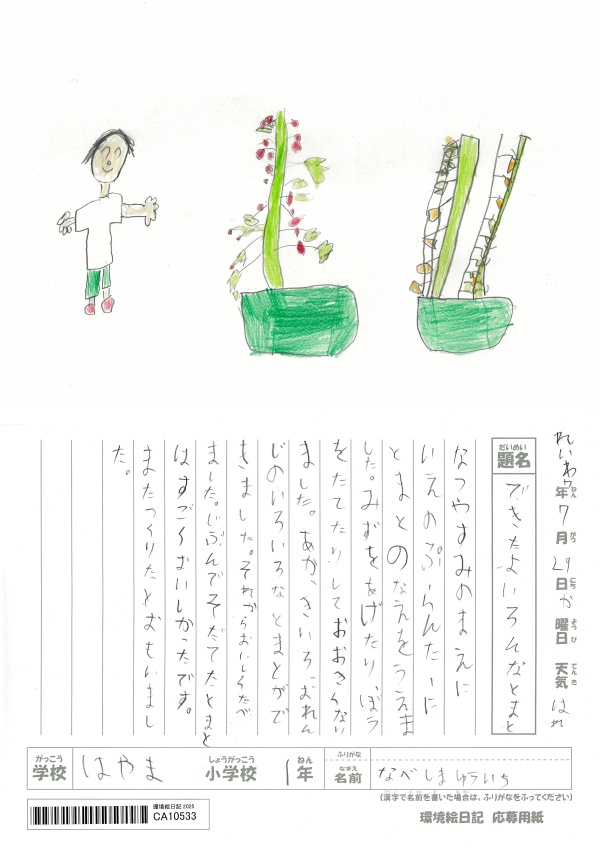 れいわ7年ねん7月がつ29日にちか曜日ようび天気てんきはれ
題名だいめい できたよいろんなとまと
なつやすみのまえに
いえのぷらんたーに
とまとのなえをうえま
した。みずをあげたり、ぼう
をたてたりしておおきくなり
ました。あか、きいろ、おれん
じのいろいろなとまとがで
きました。それからおいしくたべ
ました。じぶんでそだてたとまと
はすごくおいしかったです。
またつくりたとおもいまし
た。
がっこう しょうがっこう ねん ふりがな
学校 はやま 小学校 1年 なまえ 名前 なべしまゆういち
(漢字で名前を書いた場合は、ふりがなをふってください)
環境絵日記 2025
CA10533
環境絵日記 応募用紙